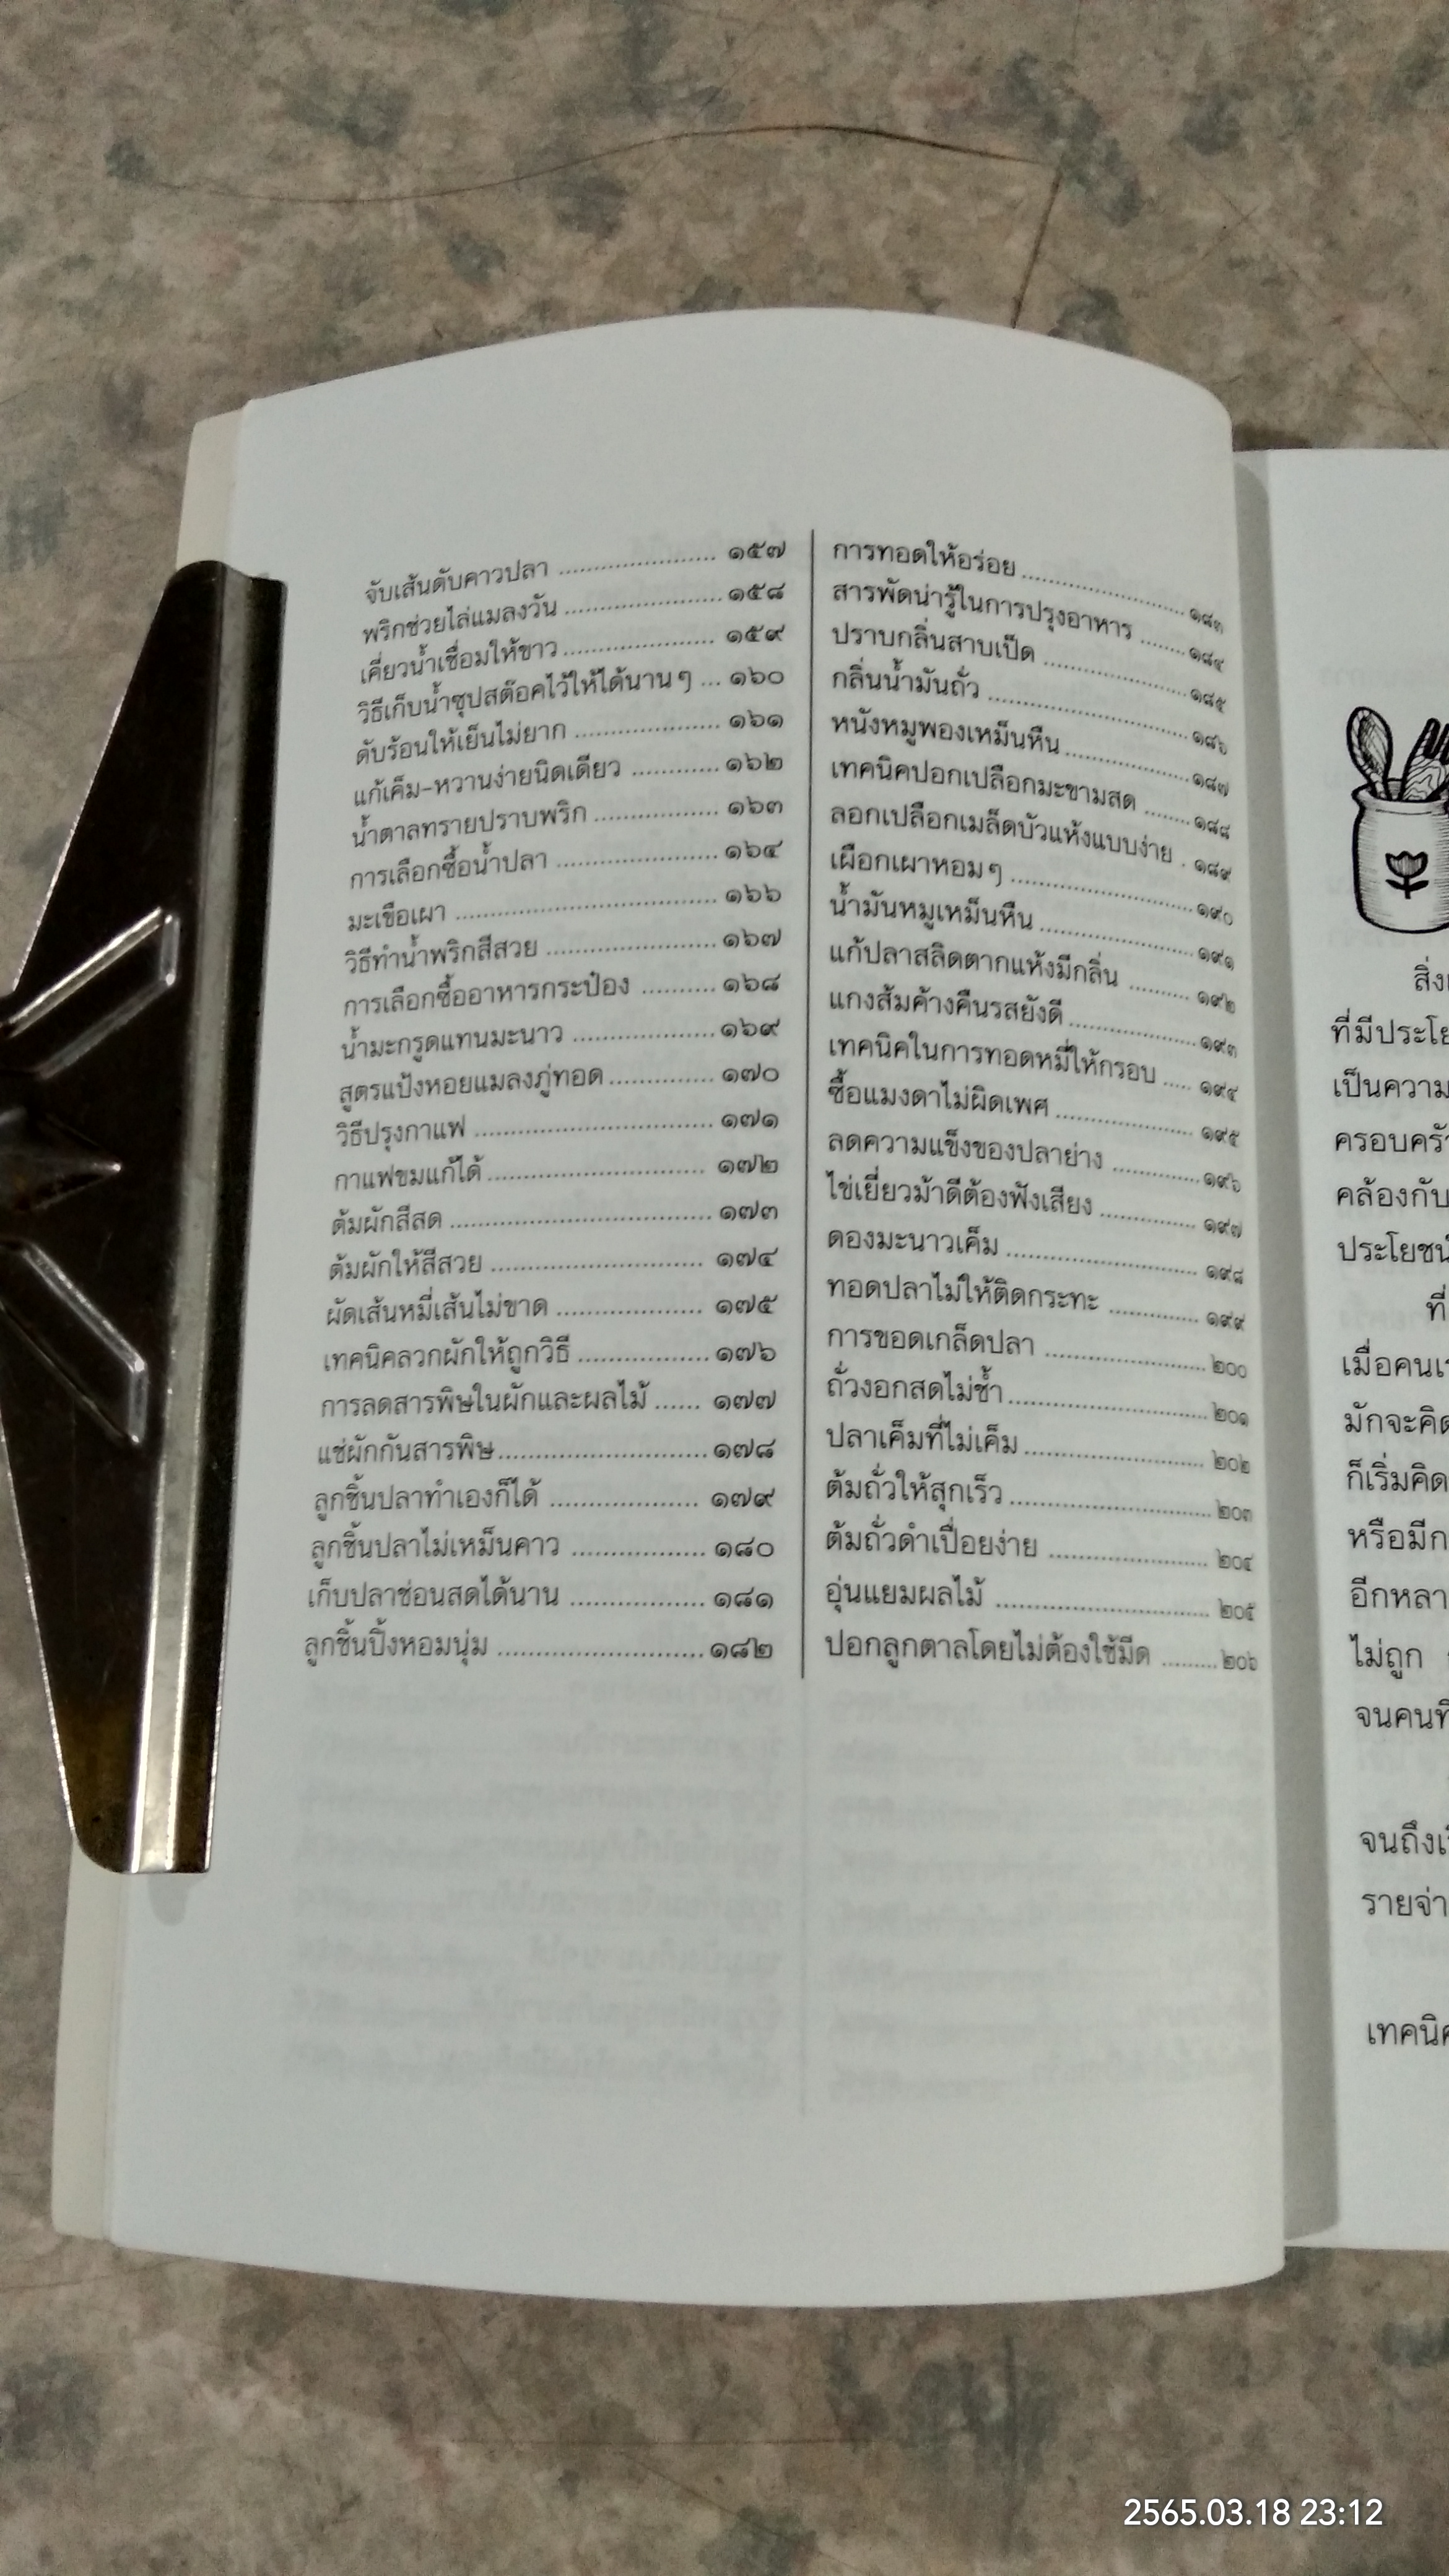 จับเส้นดับคาวปลา ........................ ๑๕๗
พริกช่วยไล่แมลงวัน ........................ ๑๕๘
เคี่ยวน้ำเชื่อมให้ขาว ....................... ๑๕๙
วิธีเก็บน้ำซุปสต๊อคไว้ให้ได้นาน ๆ ... ๑๖๐
ดับร้อนให้เย็นไม่ยาก ...................... ๑๖๑
แก้เค็ม-หวานง่ายนิดเดียว ............. ๑๖๒
น้ำตาลทรายปราบพริก ................... ๑๖๓
การเลือกซื้อน้ำปลา ........................ ๑๖๔
มะเขือเผา ...................................... ๑๖๖
วิธีทำน้ำพริกสีสวย ......................... ๑๖๗
การเลือกซื้ออาหารกระป๋อง ........... ๑๖๘
น้ำมะกรูดแทนมะนาว ..................... ๑๖๙
สูตรแป้งหอยแมลงภู่ทอด ............... ๑๗๐
วิธีปรุงกาแฟ ................................... ๑๗๑
กาแฟขมแก้ได้ ................................ ๑๗๒
ต้มผักสีสด ...................................... ๑๗๓
ต้มผักให้สีสวย ............................... ๑๗๔
ผัดเส้นหมี่เส้นไม่ขาด ..................... ๑๗๕
เทคนิคลวกผักให้ถูกวิธี ................... ๑๗๖
การลดสารพิษในผักและผลไม้ ...... ๑๗๗
แช่ผักกันสารพิษ .............................. ๑๗๘
ลูกชิ้นปลาทำเองก็ได้ ...................... ๑๗๙
ลูกชิ้นปลาไม่เหม็นคาว ................... ๑๘๐
เก็บปลาช่อนสดได้นาน ................... ๑๘๑
ลูกชิ้นปิ้งหอมนุ่ม .............................. ๑๘๒
การทอดให้อร่อย ........................ ๑๘๓
สารพัดน่ารู้ในการปรุงอาหาร ........ ๑๘๔
ปราบกลิ่นสาบเป็ด ..................... ๑๘๕
กลิ่นน้ำมันถั่ว ............................. ๑๘๖
หนังหมูพองเหม็นหืน .................. ๑๘๗
เทคนิคปอกเปลือกมะขามสด ........ ๑๘๘
ลอกเปลือกเมล็ดบัวแห้งแบบง่าย . ๑๘๙
เผือกเผาหอม ๆ .......................... ๑๙๐
น้ำมันหมูเหม็นหืน ...................... ๑๙๑
แก้ปลาสลิดตากแห้งมีกลิ่น .......... ๑๙๒
แกงส้มค้างคืนรสยังดี .................. ๑๙๓
เทคนิคในการทอดหมี่ให้กรอบ ..... ๑๙๔
ซื้อแมงดาไม่ผิดเพศ .................... ๑๙๕
ลดความแข็งของปลาย่าง ............. ๑๙๖
ไข่เยี่ยวม้าดีต้องฟังเสียง .............. ๑๙๗
ดองมะนาวเค็ม ........................... ๑๙๘
ทอดปลาไม่ให้ติดกระทะ .............. ๑๙๙
การขอดเกล็ดปลา ....................... ๒๐๐
ถั่วงอกสดไม่ช้ำ ........................... ๒๐๑
ปลาเค็มที่ไม่เค็ม ......................... ๒๐๒
ต้มถั่วให้สุกเร็ว ........................... ๒๐๓
ต้มถั่วดำเปื่อยง่าย ....................... ๒๐๔
อุ่นแยมผลไม้ .............................. ๒๐๕
ปอกลูกตาลโดยไม่ต้องใช้มีด ........ ๒๐๖
ที่มีประโย
เป็นความ
ครอบครั
คล้องกับ
ประโยชน์
ที่
เมื่อคนเ
มักจะคิด
ก็เริ่มคิด
หรือมีก
อีกหลา
ไม่ถูก
จนคนที่
จนถึงเ
รายจ่า
เทคนิค
2565.03.18 23:12